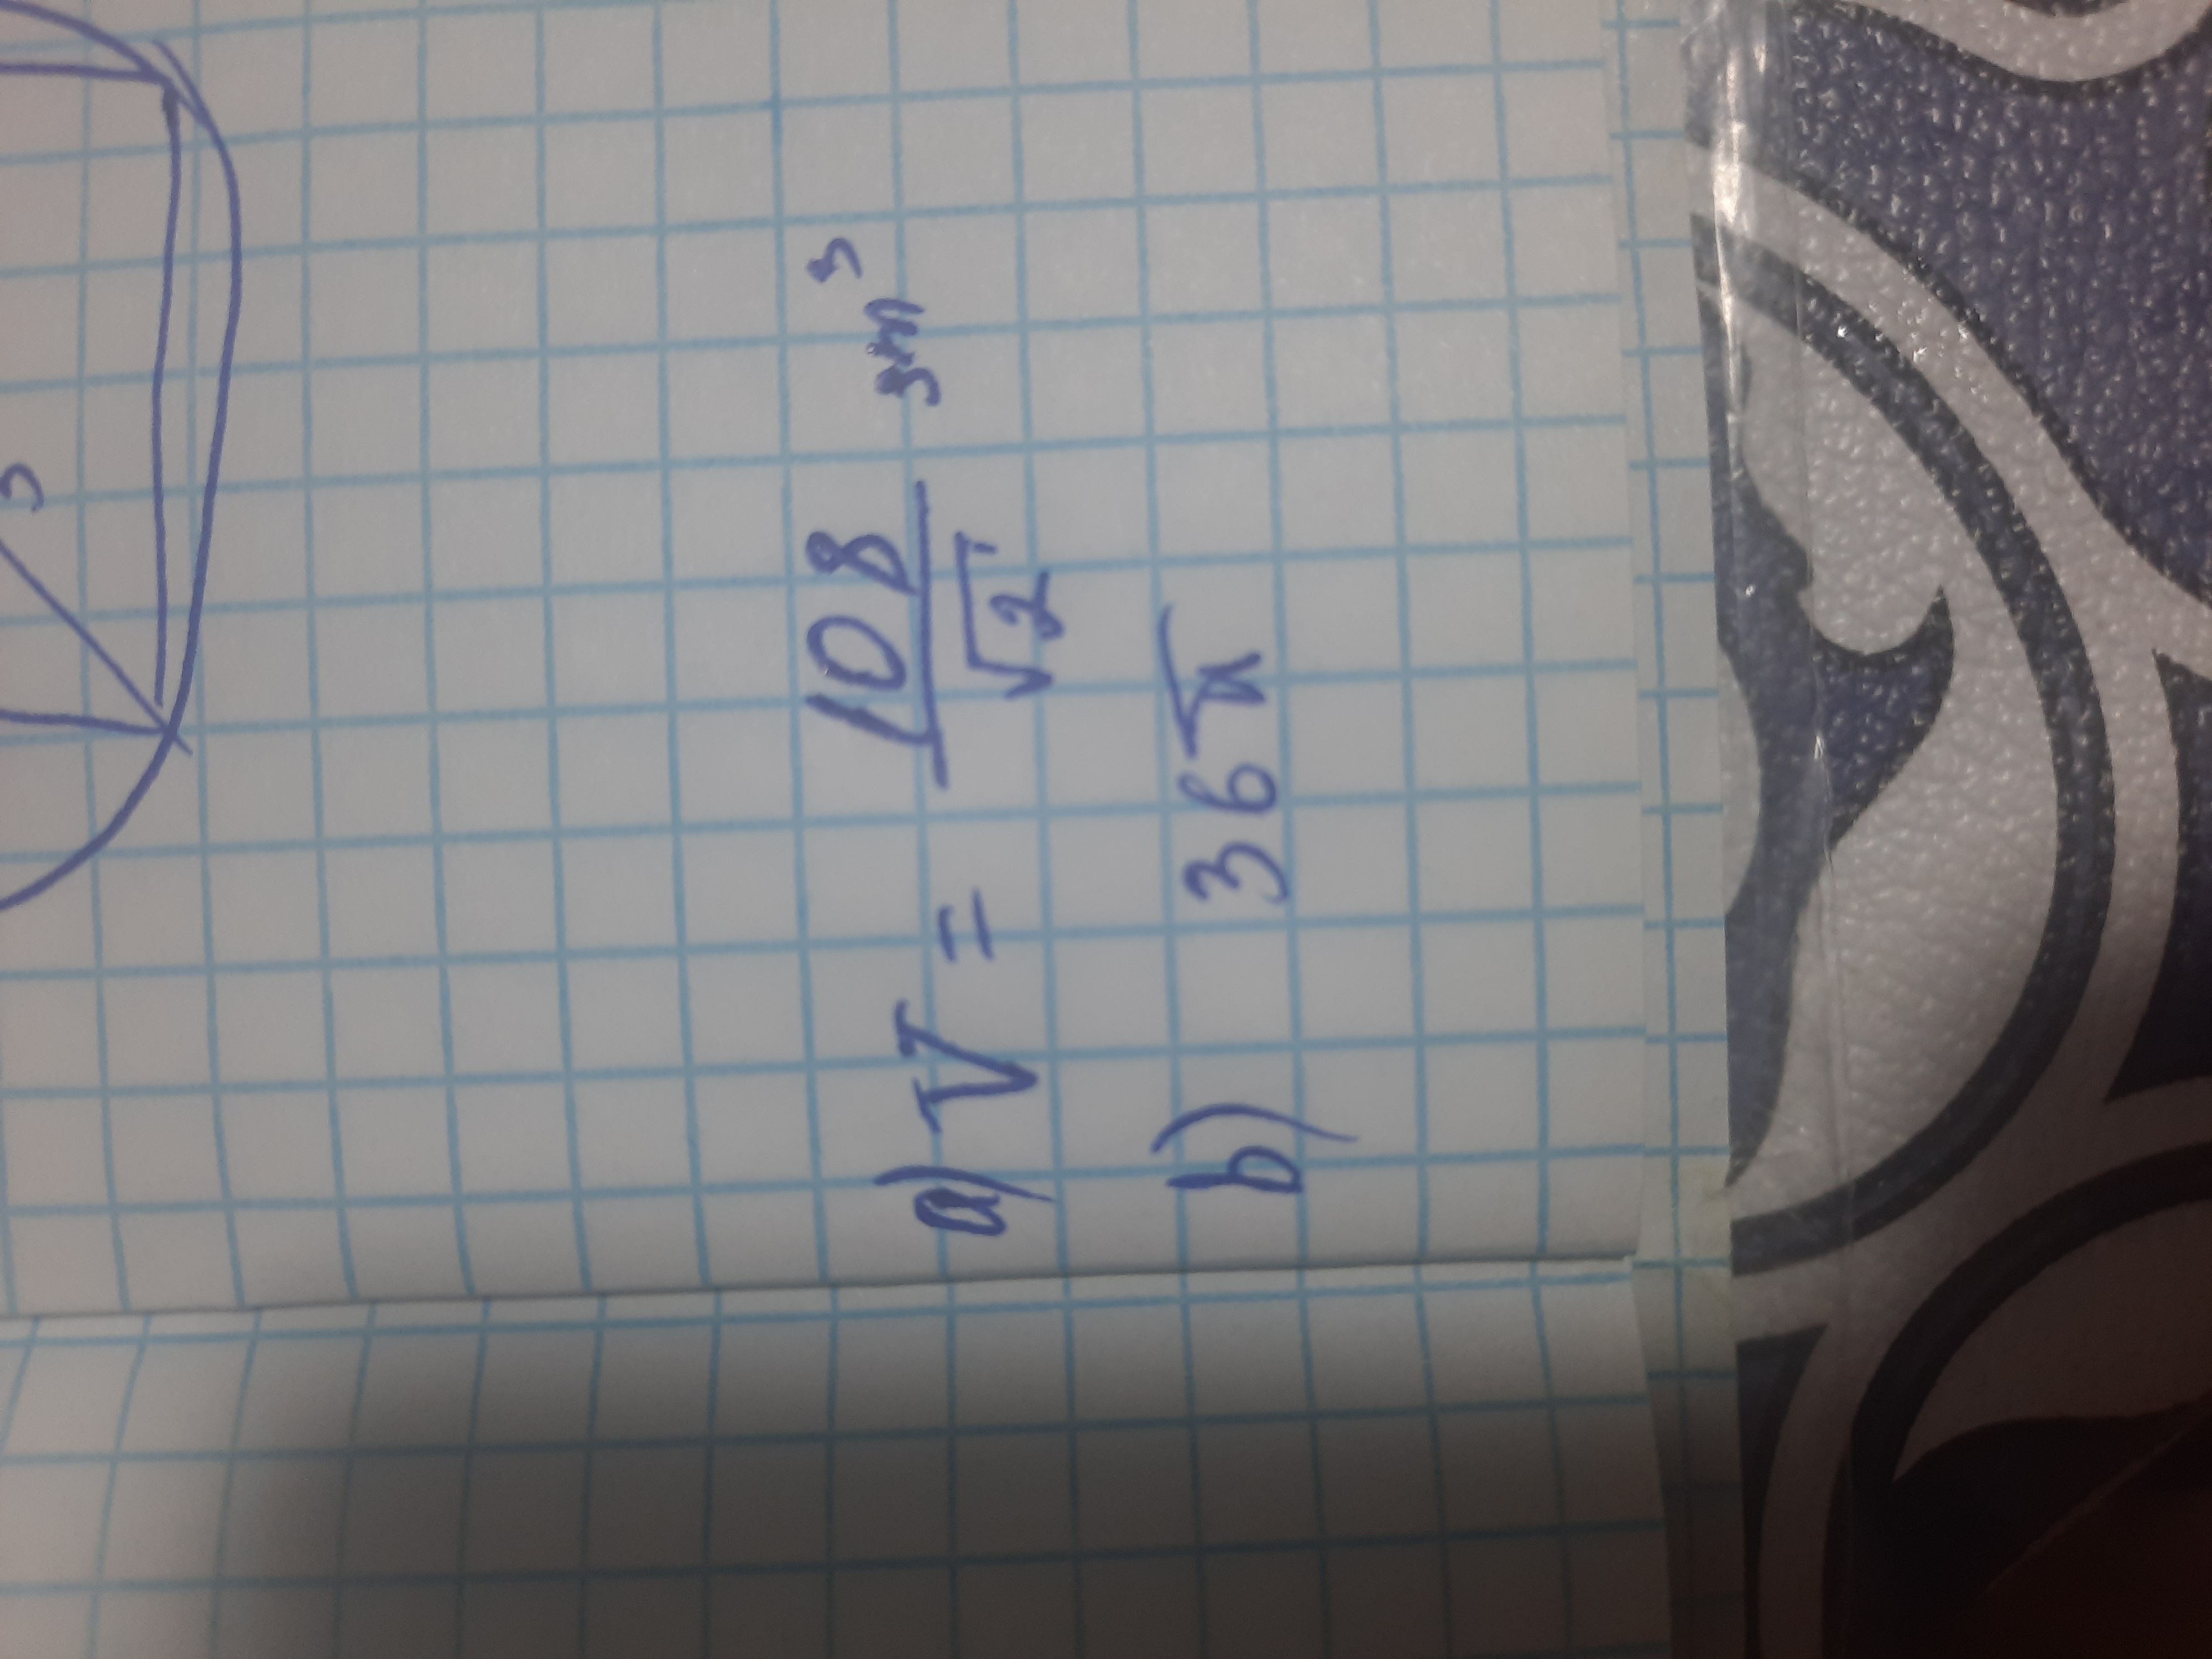 3
a) V = 108/√2 sm³
b) 36π